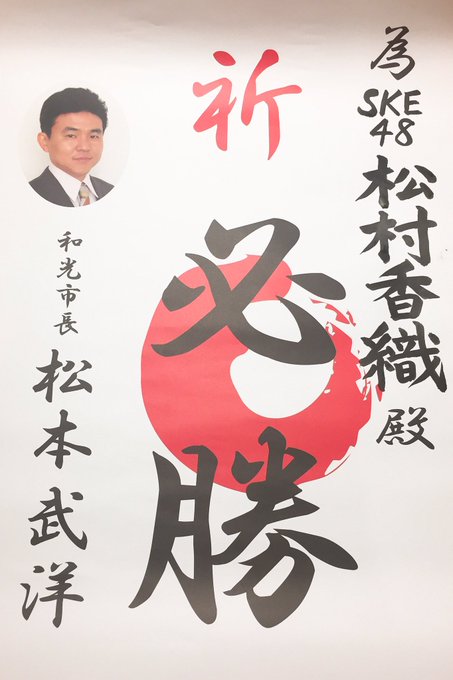 為
SKE
48
松村香織
殿
祈
必勝
和光市長
松本武洋